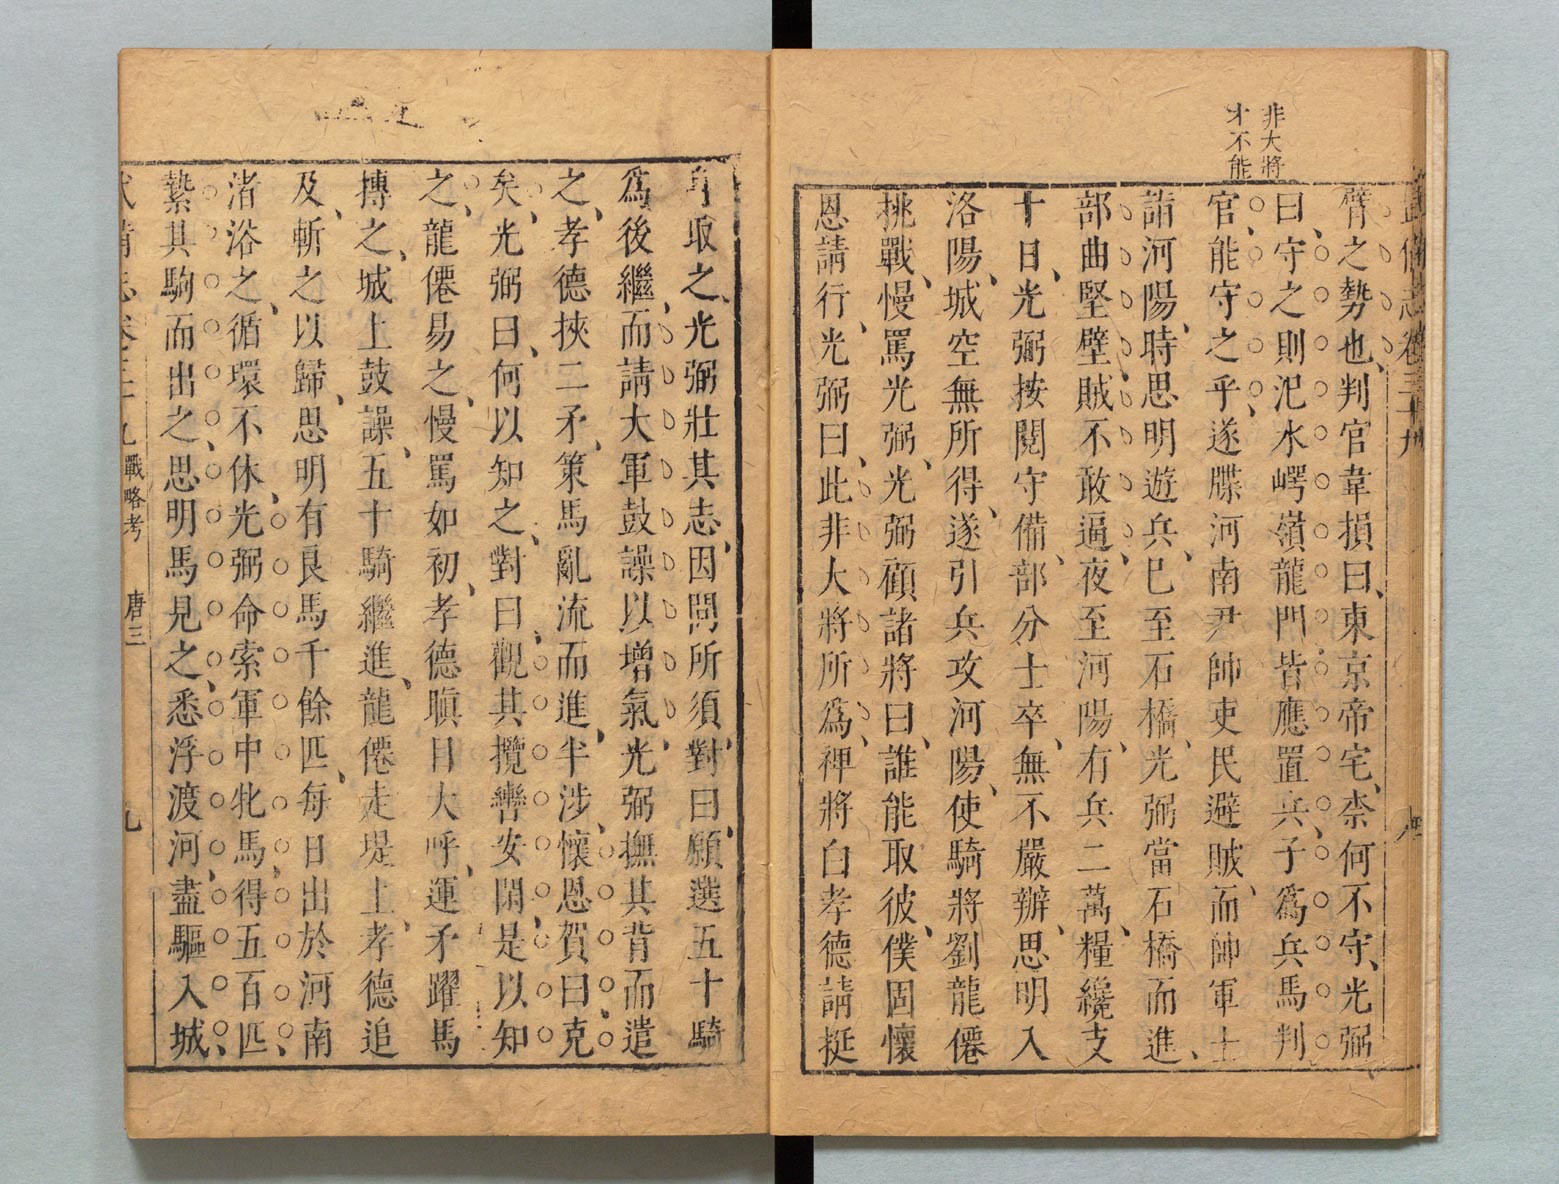 非大將
才不能
武備志卷三十九
八
臂之勢也、判官韋損曰、東京帝宅、柰何不守、光弼
曰、守之則汜水崿嶺龍門、皆應置兵、子爲兵馬判
官、能守之乎、遂牒河南尹帥吏民避賊、而帥軍士
詣河陽、時思明遊兵、已至石橋、光弼當石橋而進、
部曲堅壁、賊不敢逼、夜至河陽、有兵二萬、糧纔支
十日、光弼按閱守備、部分士卒、無不嚴辦、思明入
洛陽、城空無所得、遂引兵攻河陽、使騎將劉龍僊
挑戰、慢罵光弼、光弼顧諸將曰、誰能取彼、僕固懷
恩請行、光弼曰、此非大將所爲、裨將白孝德請挺
身取之、光弼壯其志、因問所須、對曰、願選五十騎
爲後繼、而請大軍鼓譟以增氣、光弼撫其背而遣
之、孝德挾二矛、策馬亂流而進、半涉、懷恩賀曰、克
矣、光弼曰、何以知之、對曰、觀其攬轡安閒、是以知
之、龍僊易之、慢罵如初、孝德瞋目大呼、運矛躍馬
搏之、城上鼓譟、五十騎繼進、龍僊走堤上、孝德追
及、斬之以歸、思明有良馬千餘匹、每日出於河南
渚浴之、循環不休、光弼命索軍中牝馬、得五百匹、
縶其駒而出之、思明馬見之、悉浮渡河、盡驅入城、
武備志卷三十九 戰略考 唐三 九